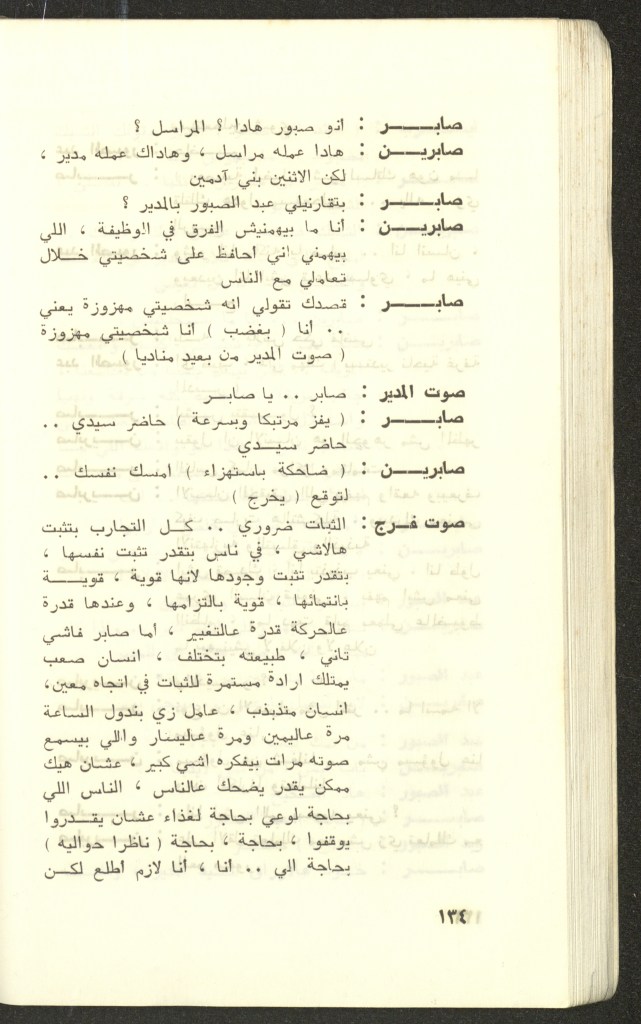 صابـــــر : انو صبور هادا ؟ المراسل ؟
صابريـــن : هادا عمله مراسل ، وهاداك عمله مدير ،
لكن الاثنين بني آدمين
صابـــــر : بتقارنيلي عبد الصبور بالمدير ؟
صابريـــن : أنا ما بيهمنيش الفرق في الوظيفة ، اللي
بيهمني اني أحافظ على شخصيتي خـــلال
تعاملي مع الناس
صابـــــر : قصدك تقولي انه شخصيتي مهزوزة يعني
.. أنا ( بغضب ) أنا شخصيتي مهزوزة
( صوت المدير من بعيد مناديا )
صوت المدير : صابر .. يا صابـــر
صابـــــر : ( يفز مرتبكا وبسرعة ) حاضر سيدي ..
حاضر سيـــدي
صابريـــن : ( ضاحكة باستهزاء ) امسك نفسك ..
لتوقع ( يخرج )
صوت فــرج : الثبات ضروري .. كـــل التجارب بتثبت
هالاشي ، في ناس بتقدر تثبت نفسها ،
بتقدر تثبت وجودها لانها قوية ، قويـــة
بانتمائها ، قوية بالتزامها ، وعندها قدرة
عالحركة قدرة عالتغيير ، أما صابر فاشي
تاني ، طبيعته بتختلف ، انسان صعب
يمتلك ارادة مستمرة للثبات في اتجاه معين،
انسان متذبذب ، عامل زي بندول الساعة
مرة عاليمين ومرة عاليسار واللي بيسمع
صوته مرات بيفكره اشي كبير ، عشـان هيك
ممكن يقدر يضحك عالناس ، الناس اللي
بحاجة لوعي بحاجة لغذاء عشان يقـــدروا
يوقفوا ، بحاجة ، بحاجة ( ناظرا حواليه )
بحاجة الي .. أنا ، أنا لازم أطلع لكـــن
١٣٤